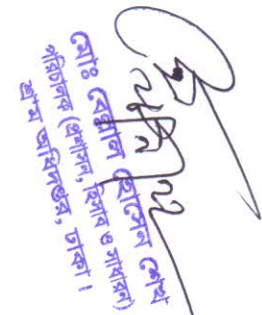 মোঃ বেল্লাল হোসেন শেখ
পরিচালক (প্রশাসন, হিসাব ও সাধারণ)
শ্রম অধিদপ্তর, ঢাকা।